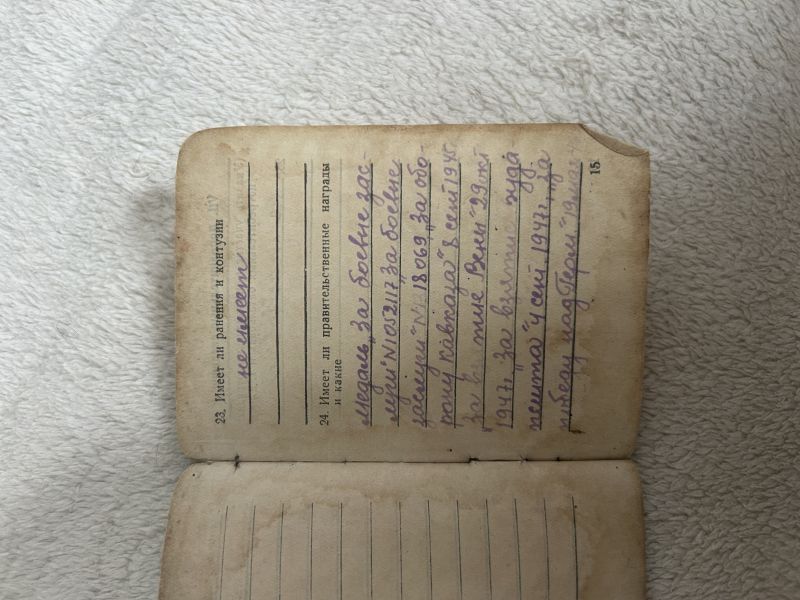 23. Имеет ли ранения и контузии
не имеет
24. Имеет ли правительственные награды
и какие
Медаль „За боевые зас-
луги" №1052117 „За боевые
заслуги" № 18069 „За обо-
рону Кавказа" 8 сент 1945г.
За взятие Вены" 29 окт
1947г. „За взятие Буда
пешта" 4 сент. 1947г. „За
победу над Герм."
15